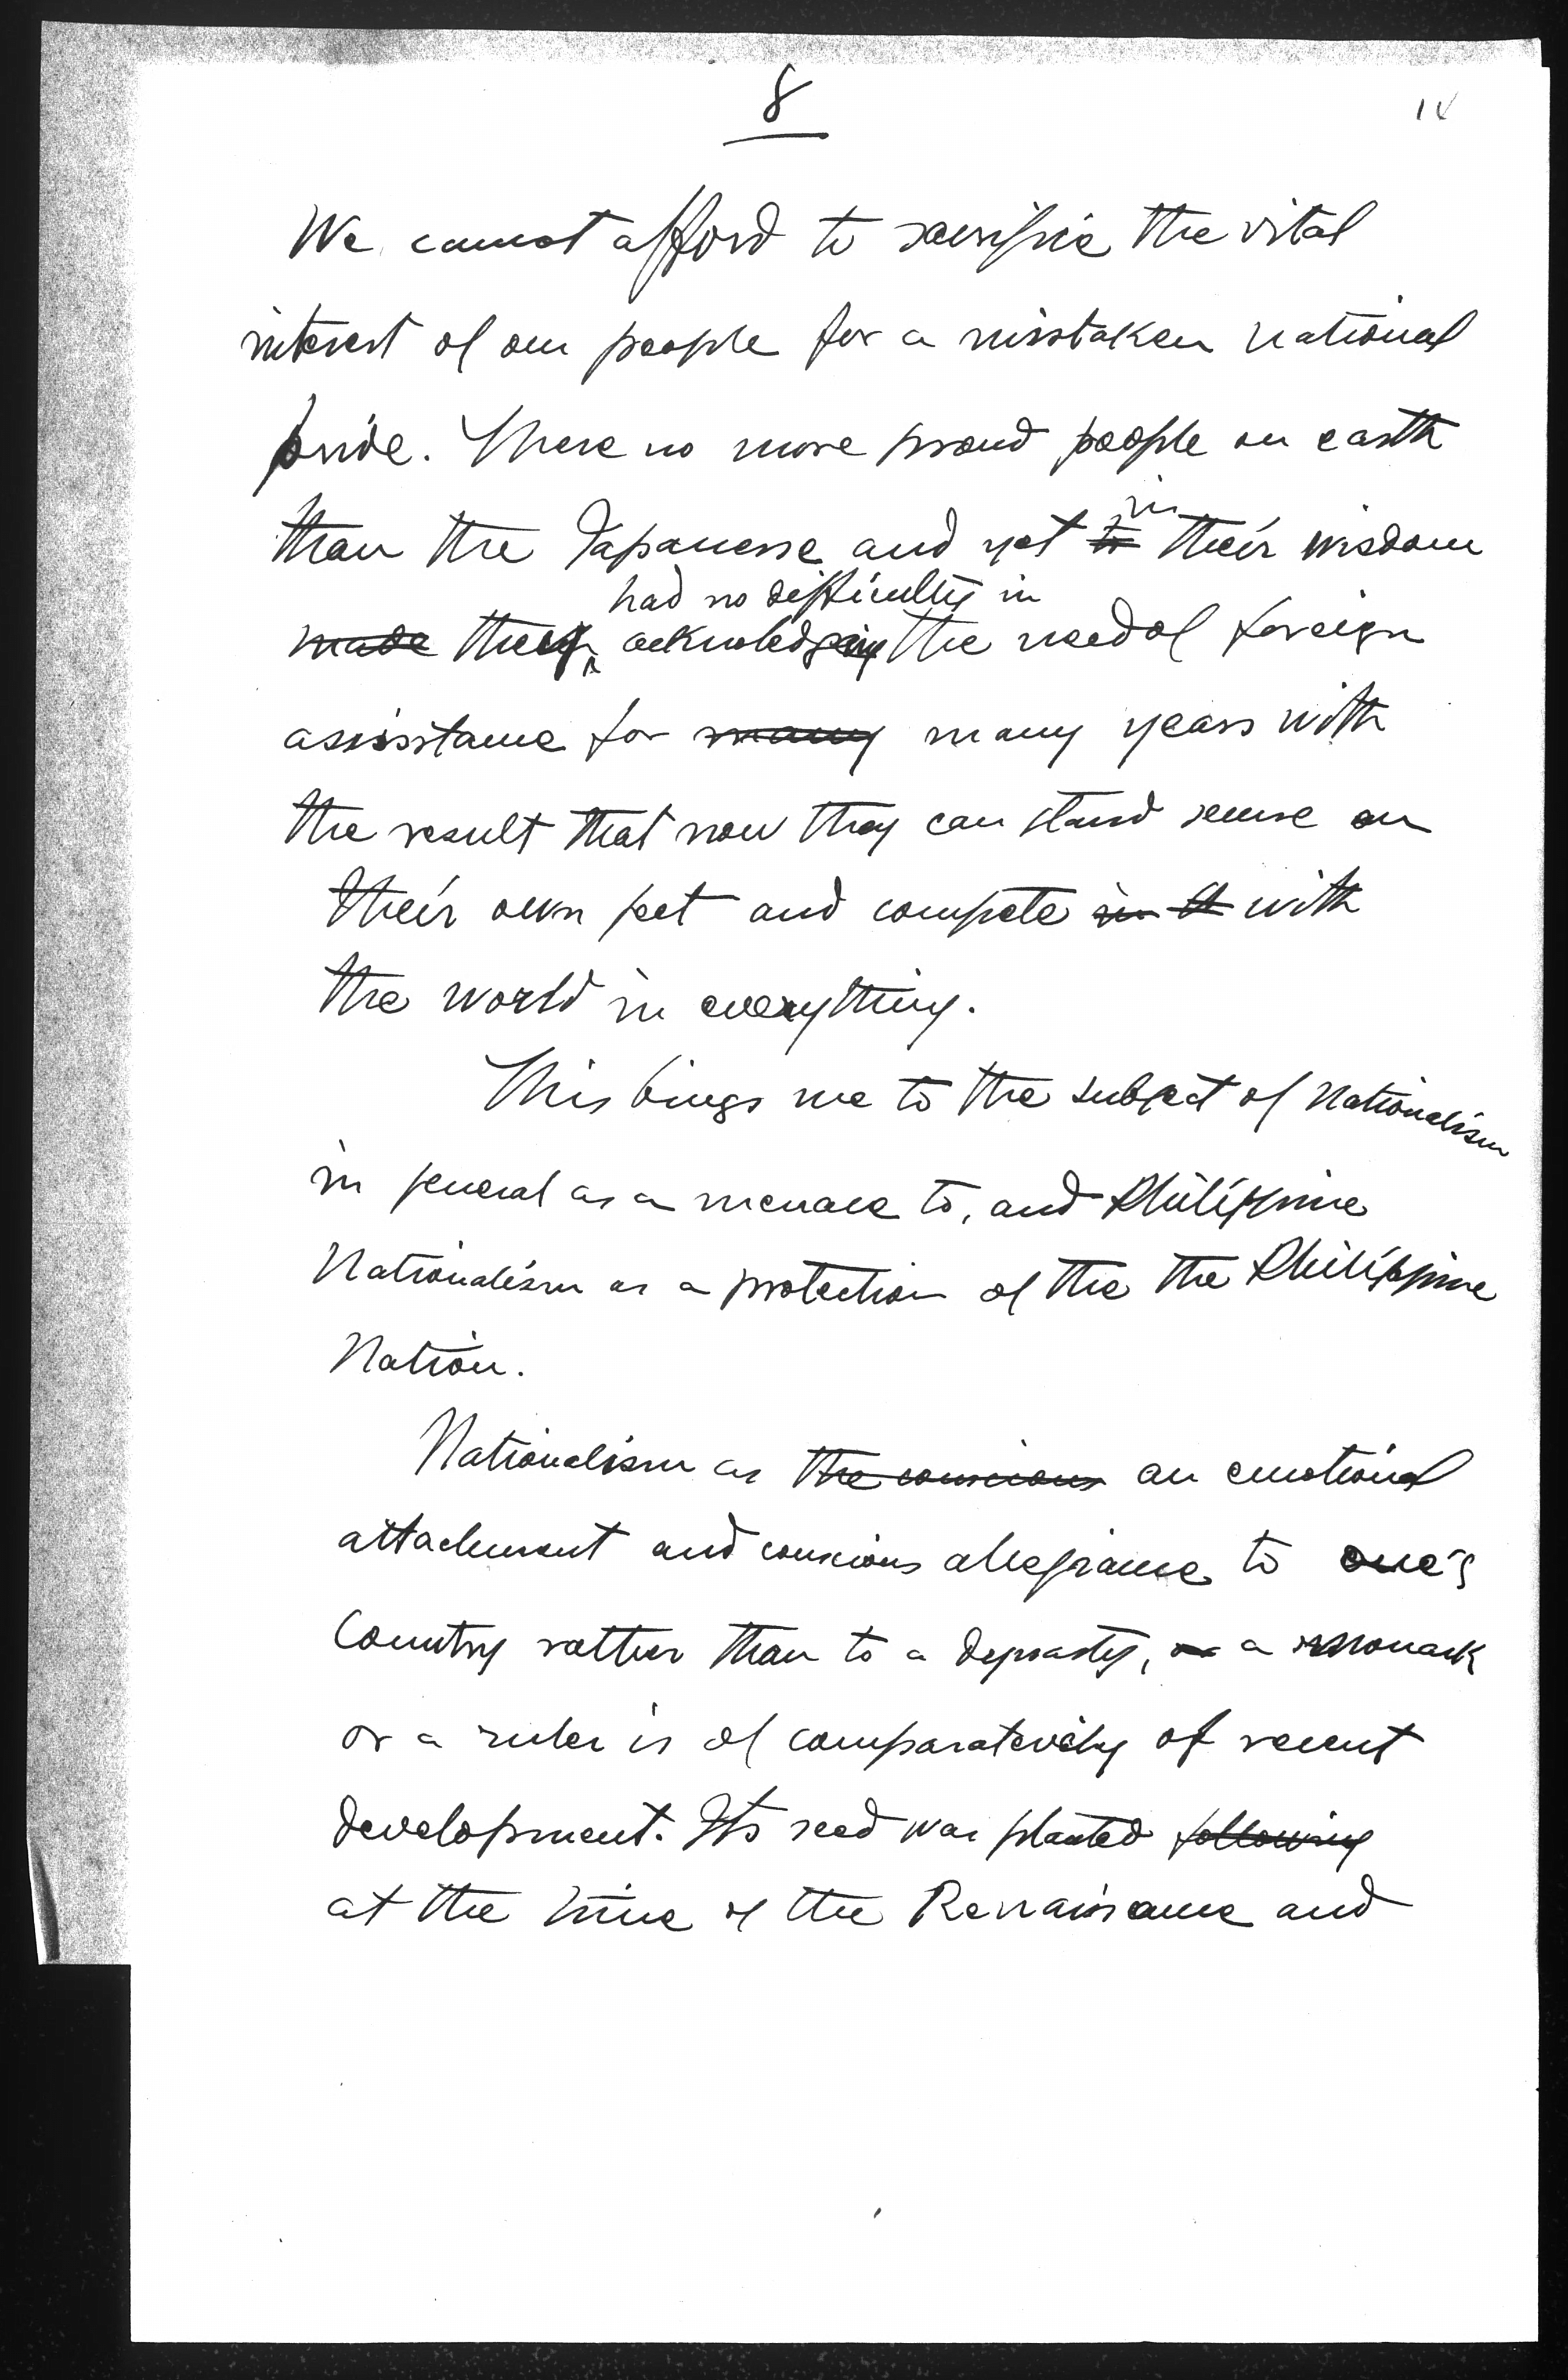 8
We cannot afford to sacrifice the vital
interest of our people for a misstaken national
pride. There no more proud people on earth
than the Japanesse and yet to in their wisdom
had no difficulty in
made they acknoledging the need of foreign
assisstance for many many years with
the result that now they can stand secure on
their own feet and compete in it with
the world in everything.
This bings me to the subject of Nationalism
in general as a menace to, and Philippine
Nationalism as a protection of the the Philippine
Nation.
Nationalism as the conscious an emotional
attachment and conscious allegiance to one's
Country rather than to a dynasty, or a monark
or a ruler is of comparatevely of recent
development. Its seed was planted following
at the time of the Renaissance and